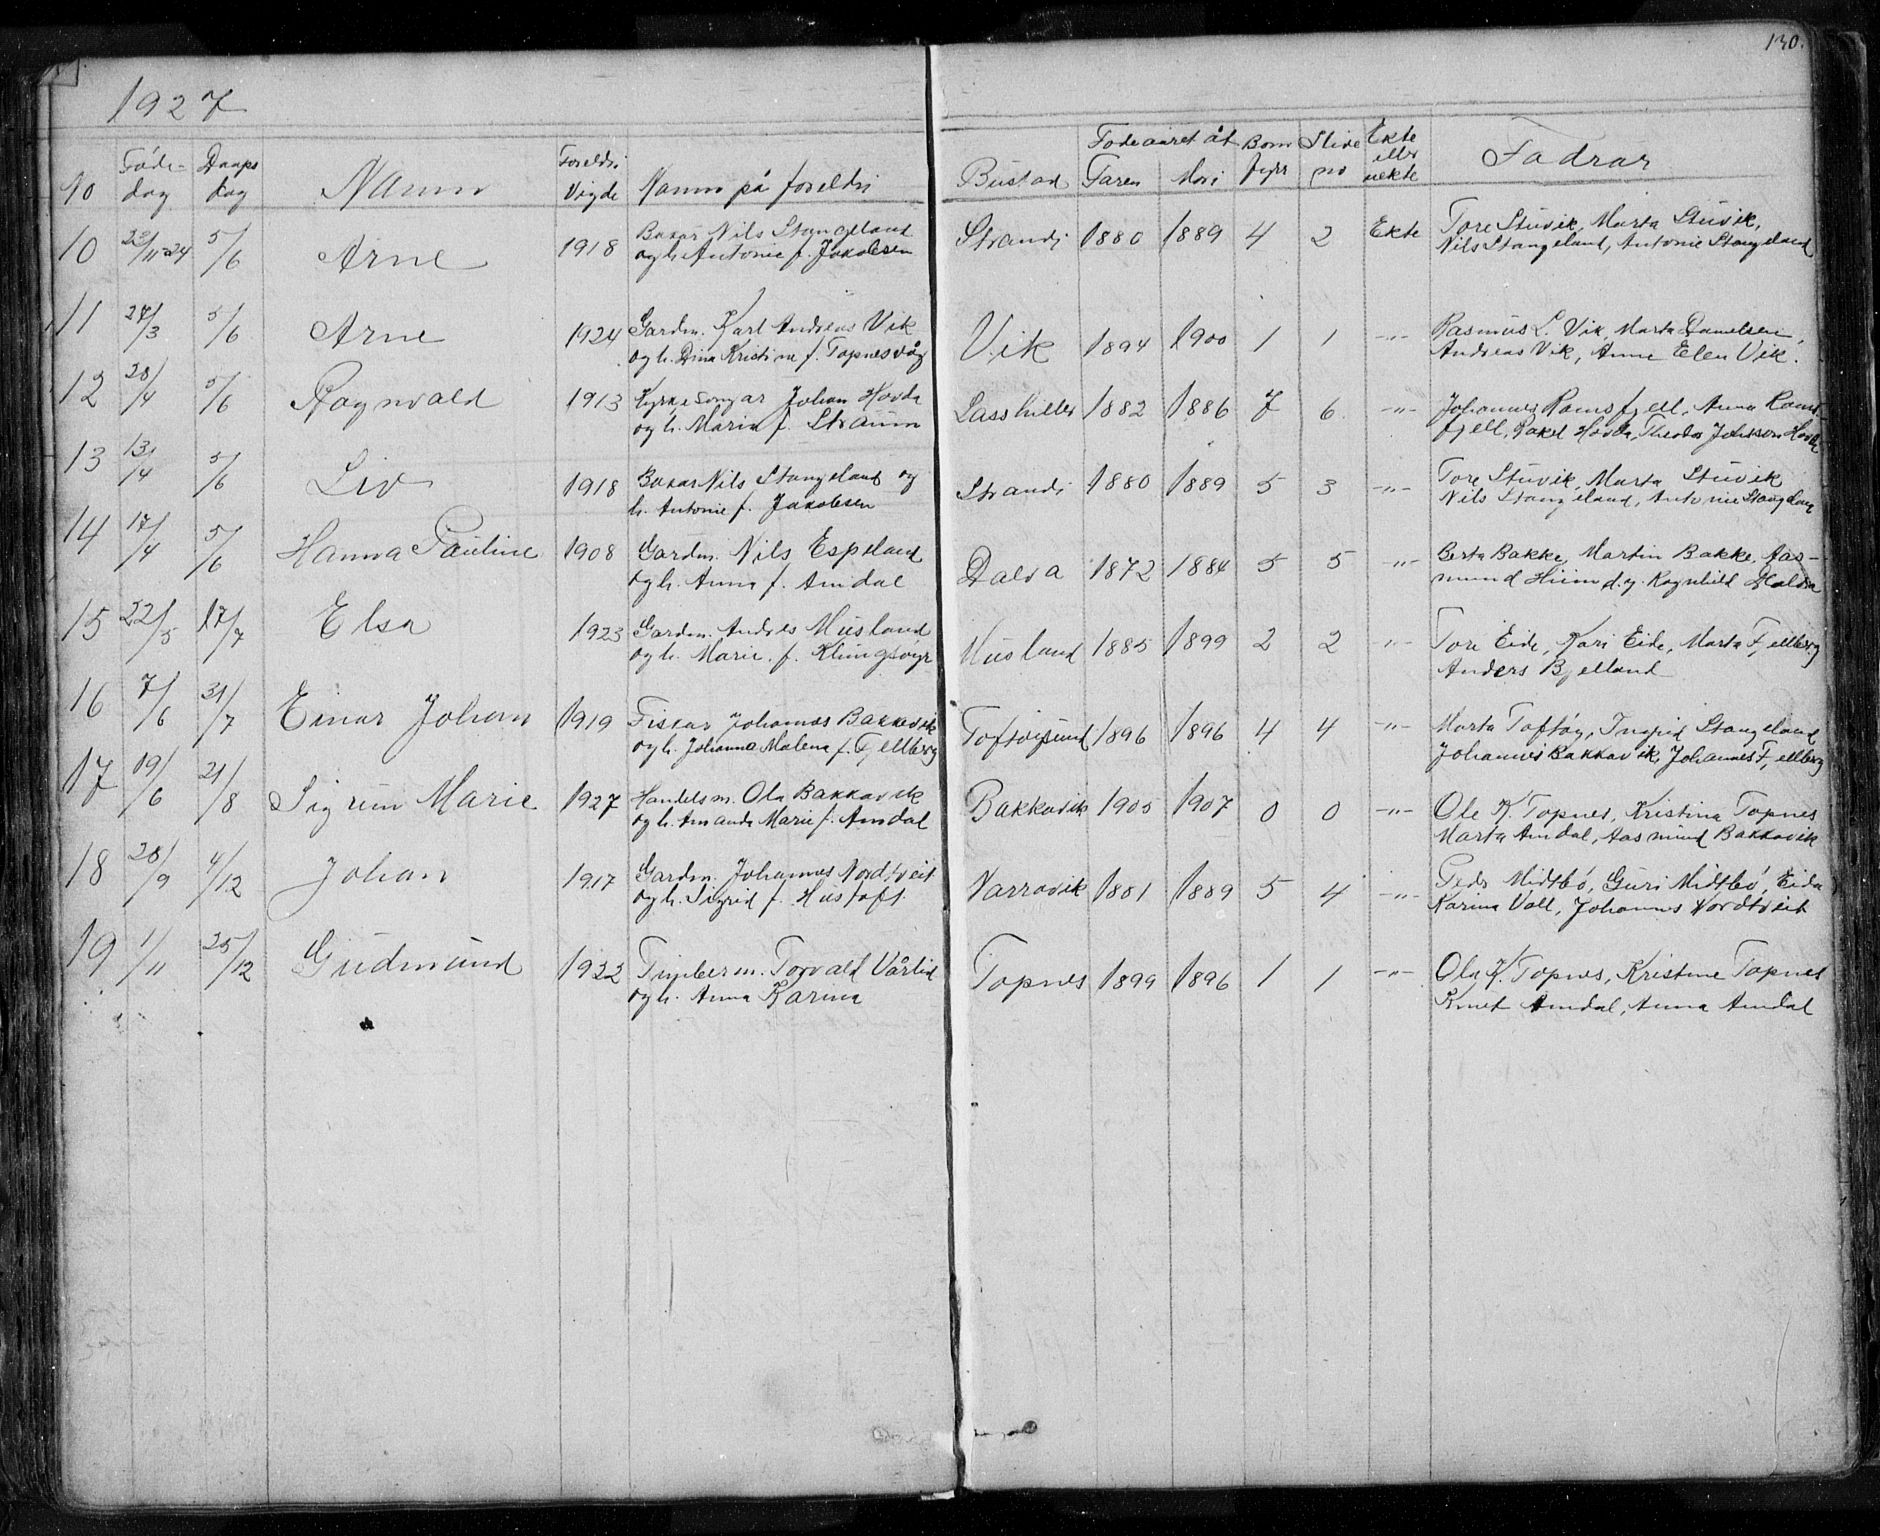 130.
1927
No Føde-dag Daaps dag Namn Foreldri Vigde Namn på foreldri Bustad Fødeaaret åt Faren Mori Born fyrr Live no Ekte eller uekte Fadrar
10 23/11-24 5/6 Arne 1918 Bakar Nils Stangeland Strandi 1880 1889 4 2 Ekte Tore Stuvik, Marta Stuvik,
og h. Antonie f. Jakobsen Nils Stangeland, Antonie Stangeland
11 27/3 5/6 Arne 1924 Gardm. Karl Andreas Vik Vik 1894 1900 1 1 -"- Rasmus L. Vik, Marta Danielsen,
og h. Dina Kristine f. Topnesvåg Andreas Vik, Anne Elen Vik.
12 28/4 5/6 Ragnvald 1913 Kyrkjesongar Johan Hovda 1882 1886 7 6 -"- Johannes Ramsfjell, Anna Rams-
og h. Maria f. Straum fjell, Rakel Hovda, Theodor Johnsen Hovda
13 13/4 5/6 Liv 1918 Bakar Nils Stangeland og Strandi 1880 1889 5 3 -"- Tore Stuvik, Marta Stuvik
h. Antonie f. Jakobsen Nils Stangeland, Antonie Stangeland
14 17/4 5/6 Hanna Pauline 1908 Gardm. Nils Espeland Dalva 1872 1884 5 5 -"- Berta Bakke, Martin Bakke, Aas-
og h. Anna f. Amdal mund Hiim d.y. Ragnhild
15 22/5 17/7 Elsa 1923 Gardm. Andres Musland Musland 1885 1899 2 2 -"- Tore Eide, Kari Eide, Marta Fjellberg
og h. Marie f. Klungsøyr Anders Bjelland
16 7/6 31/7 Einar Johan 1919 Fiskar Johannes Bakkevik Toftøysund 1896 1896 4 4 -"- Marta Toftøy, Ingrid Stangeland
og h. Johanna Malena f. Fjellberg Johannes Bakkavik, Johannes Fjellberg
17 19/6 21/8 Sigrun Marie 1927 Handelsm. Ola Bakkavik Bakkavik 1905 1907 0 0 -"- Ole K. Topnes, Kristina Topnes
og h. Amanda Marie f. Amdal Marta Amdal, Aasmund Bakkavik
18 28/9 4/12 Johan 1917 Gardm. Johannes Nordtveit Narravik 1881 1889 5 4 -"- Peder Midtbø, Guri Midtbø, Eida
og h. Sigrid f. Hustoft. Karina Vall, Johannes Nordtveit
19 1/11 25/12 Gudmund 1922 Timberm. Torvald Vårlid Topnes 1899 1896 1 1 -"- Ola K. Topnes, Kristine Topnes
og h. Anna Karina Knut Amdal, Anna Amdal